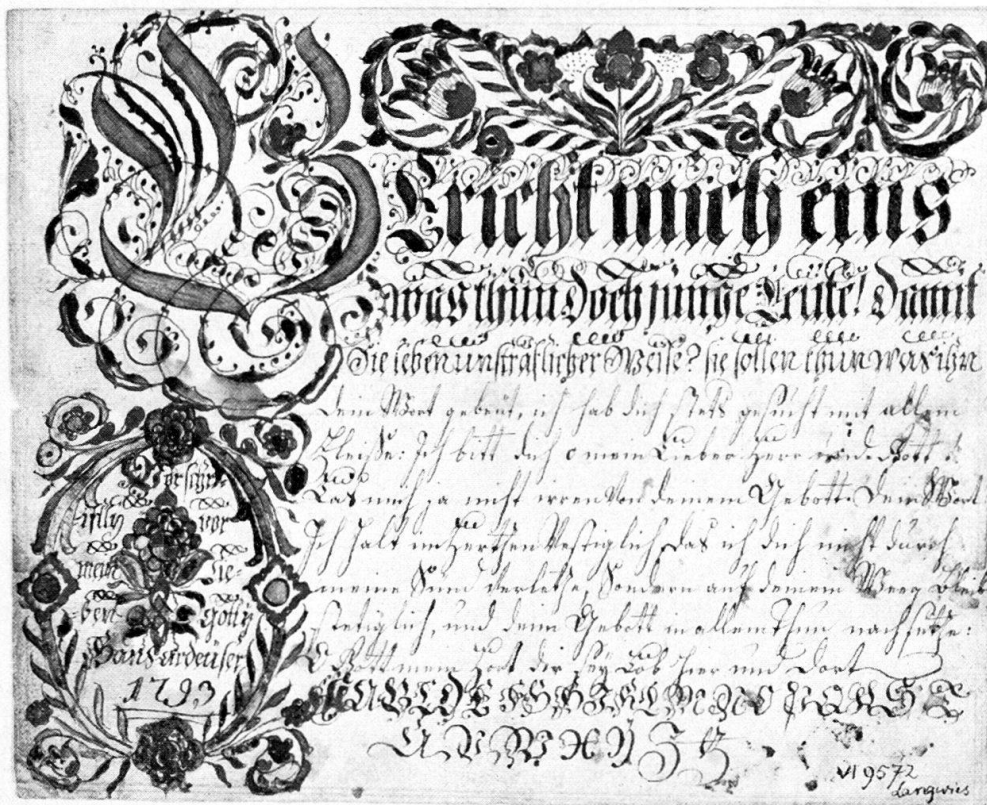 Bericht mich eins
was thun doch junge Leute! Damit
Sie leben unsträflicher Weise? sie sollen thun was ihn
dein Wort gebeut, ich hab dich stets gesucht mit allem
Fleisse: Ich bitt dich o mein Lieber Herr und Gott
Las mich ja nicht irren Von deinem Gebott. Dein Wort
Ich halt im Herthen Vestiglich, das ich dich nicht durch
meine Sünd verlethe, Sondern auf deinem Weeg bleib
stetiglich, und deim Gebott in allem Thun nachsethe:
O Gott mein Hort dir sey Lob hier und Dort
A B C D E F G H I K L M N O P Q R S T
U V W X Y Z
Vorschrifft
vor
mein lie-
ben Götty
Hans ardeüser
1793
VI 9572
Langwies